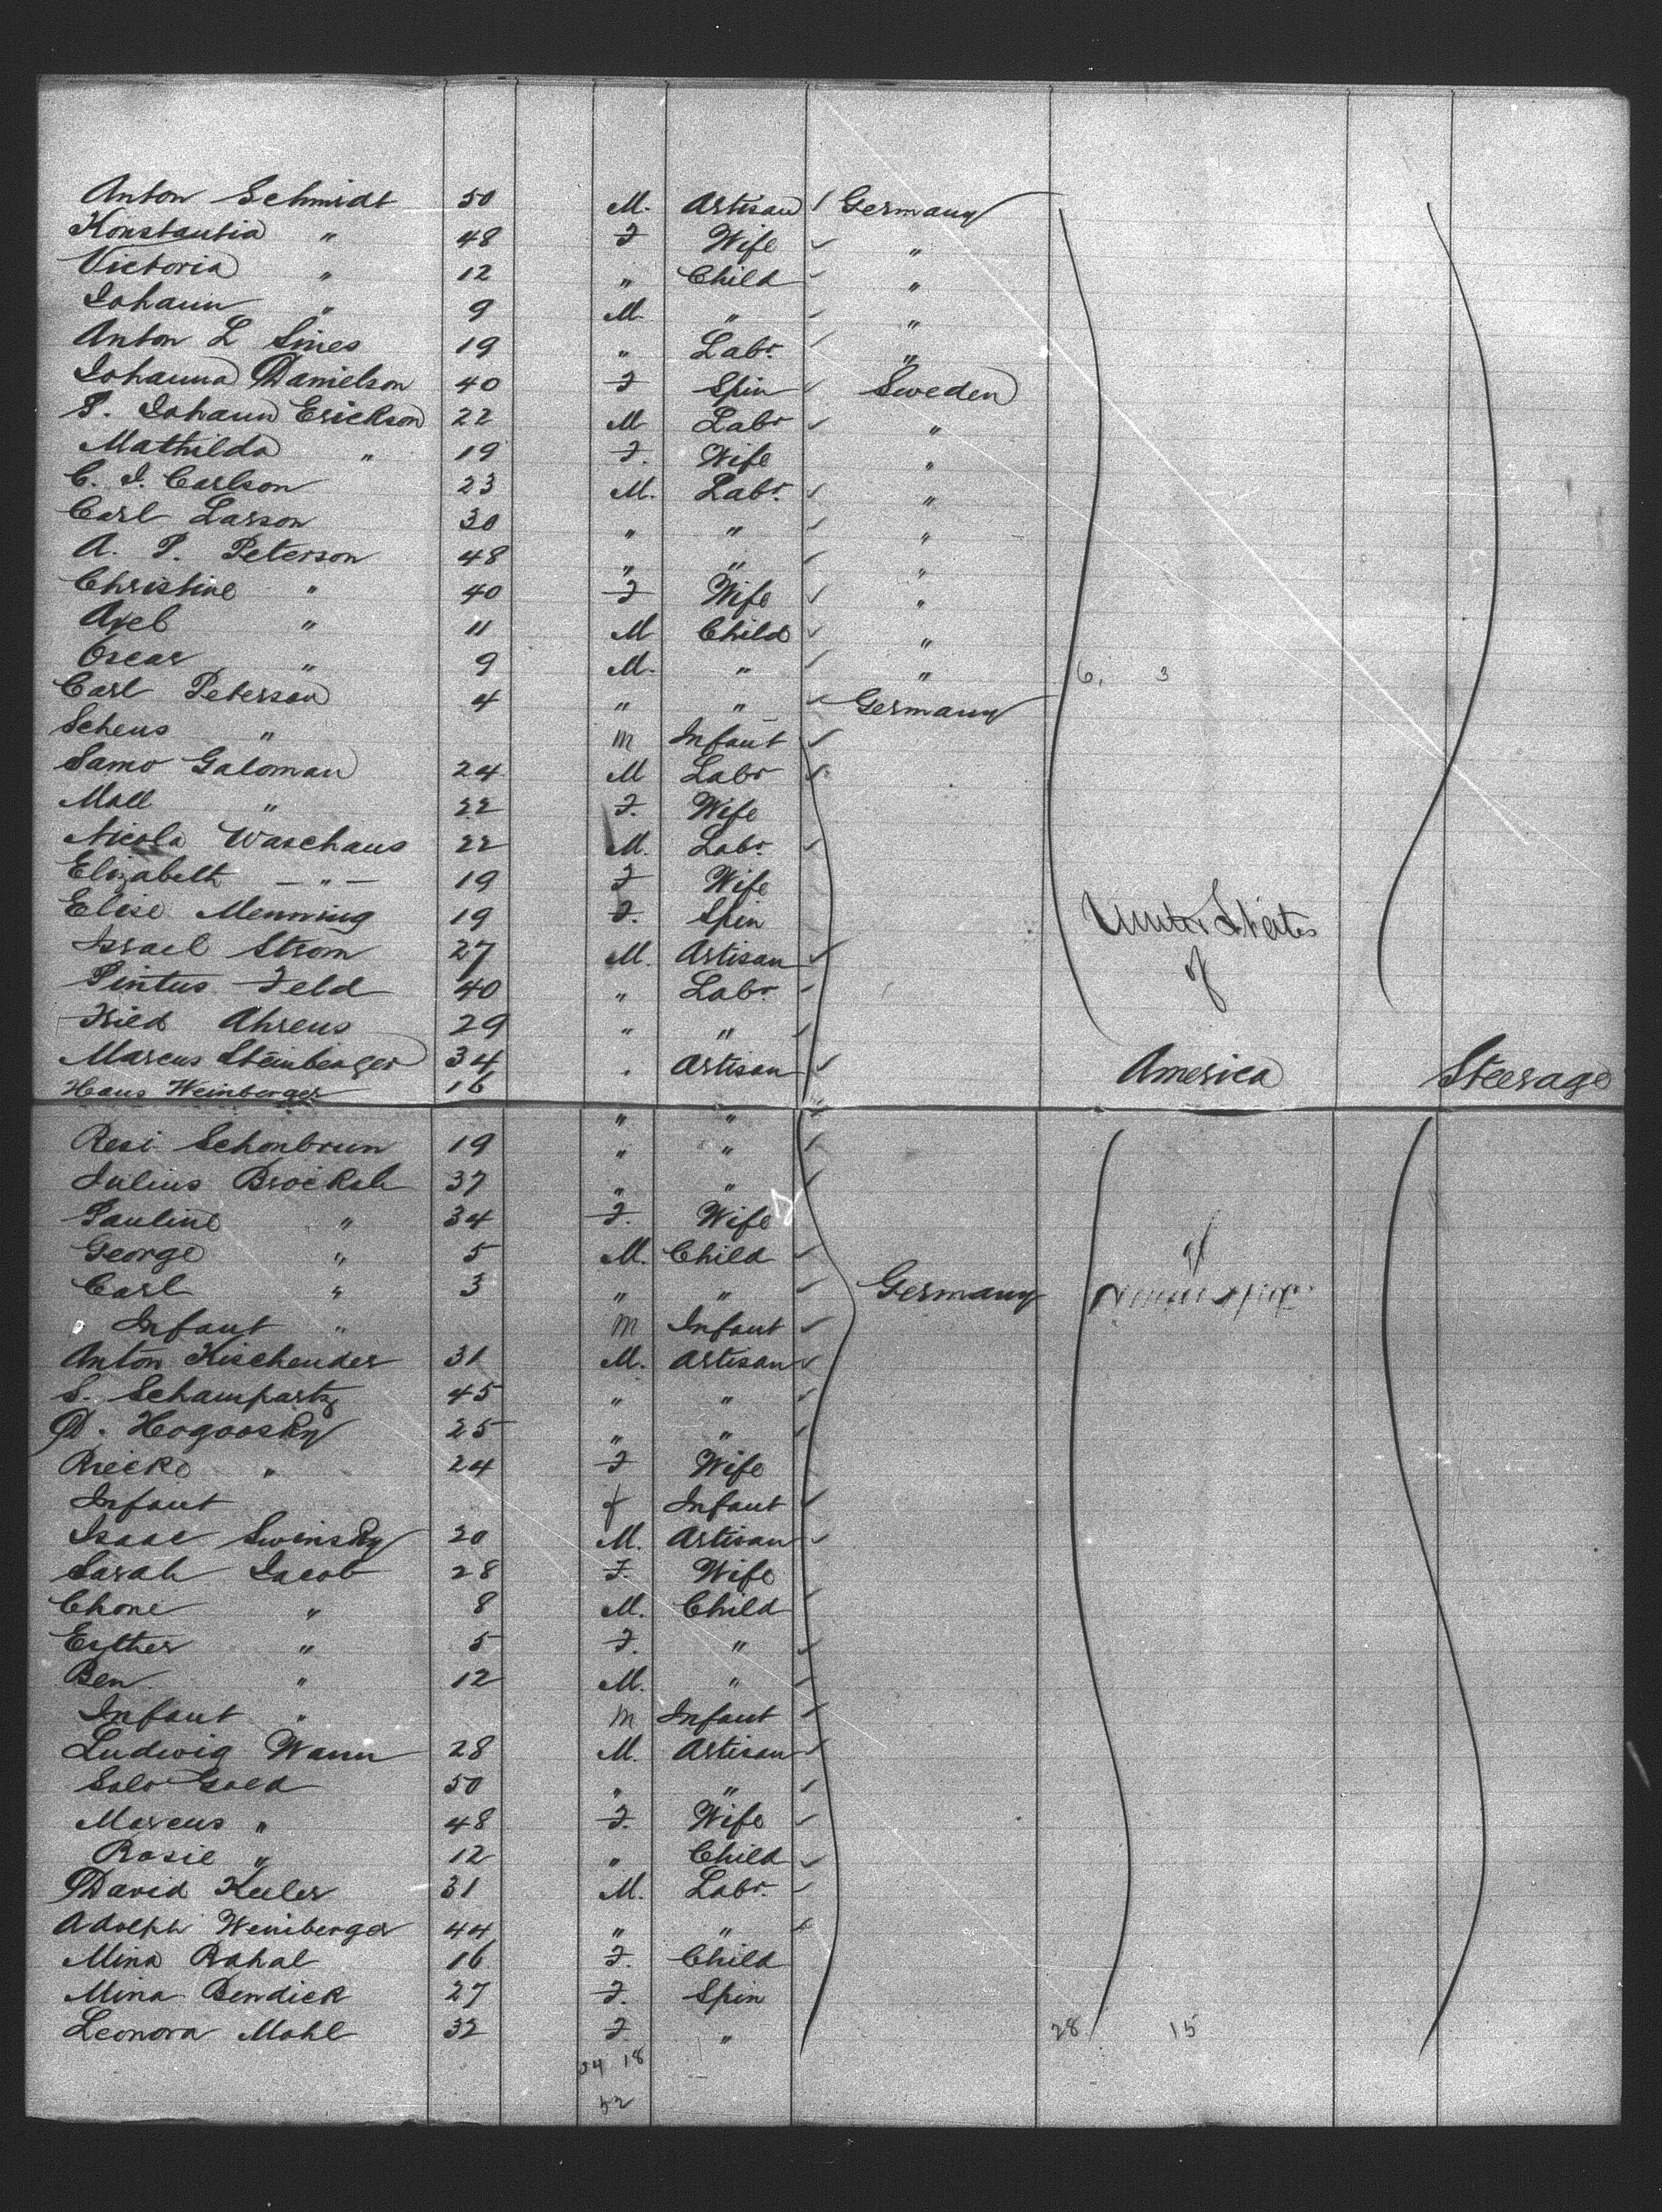 Anton Schmidt 50 M. Artisan Germany
Konstantia " 48 F Wife "
Victoria " 12 " Child "
Johann " 9 M. " "
Anton L Sines 19 " Labr. "
Johanna Danielson 40 F Spin Sweden
P. Johann Erickson 22 M Labr "
Mathilda " 19 F. Wife "
C. J. Carlson 23 M. Labr. "
Carl Larson 30 " " "
A. P. Peterson 48 " " "
Christine " 40 F Wife "
Axel " 11 M Child "
Oscar " 9 M. " " 6. 3
Carl Peterson 4 " " Germany
Scheus " m Infant
Samo Galoman 24 M Labr
Mall " 22 F. Wife
Nicola Waschaus 22 M. Labr.
Elizabeth — " — 19 F Wife
Elise Menning 19 F. Spin United States
Israel Strom 27 M. Artisan of
Pintus Feld 40 " Labr.
Fried Ahrens 29 " "
Marcus Steinberger 34 " Artisan America Steerage
Hans Weinberger 16 " "
Resi Schonbrun 19 " "
Julius Brocksh 37 " "
Pauline " 34 F. Wife
George " 5 M. Child
Carl " 3 " " Germany
Infant " m Infant
Anton Kischender 31 M. Artisan
S. Schampartz 45 " "
D. Hogoosky 25 " "
Riecke " 24 F Wife
Infant f Infant
Isaac Swinsky 20 M. Artisan
Sarah Jacob 28 F. Wife
Chone " 8 M. Child
Esther " 5 F. "
Ben " 12 M. "
Infant " m Infant
Ludwig Wann 28 M. Artisan
Salo Gold 50 " "
Marcus " 48 F. Wife
Rosie " 12 " Child
David Keeler 31 M. Labr.
Adolph Weinberger 44 " "
Mina Rahal 16 F. Child
Mina Bendick 27 F. Spin
Leonora Mohl 32 F. " 28 15
34 18
52